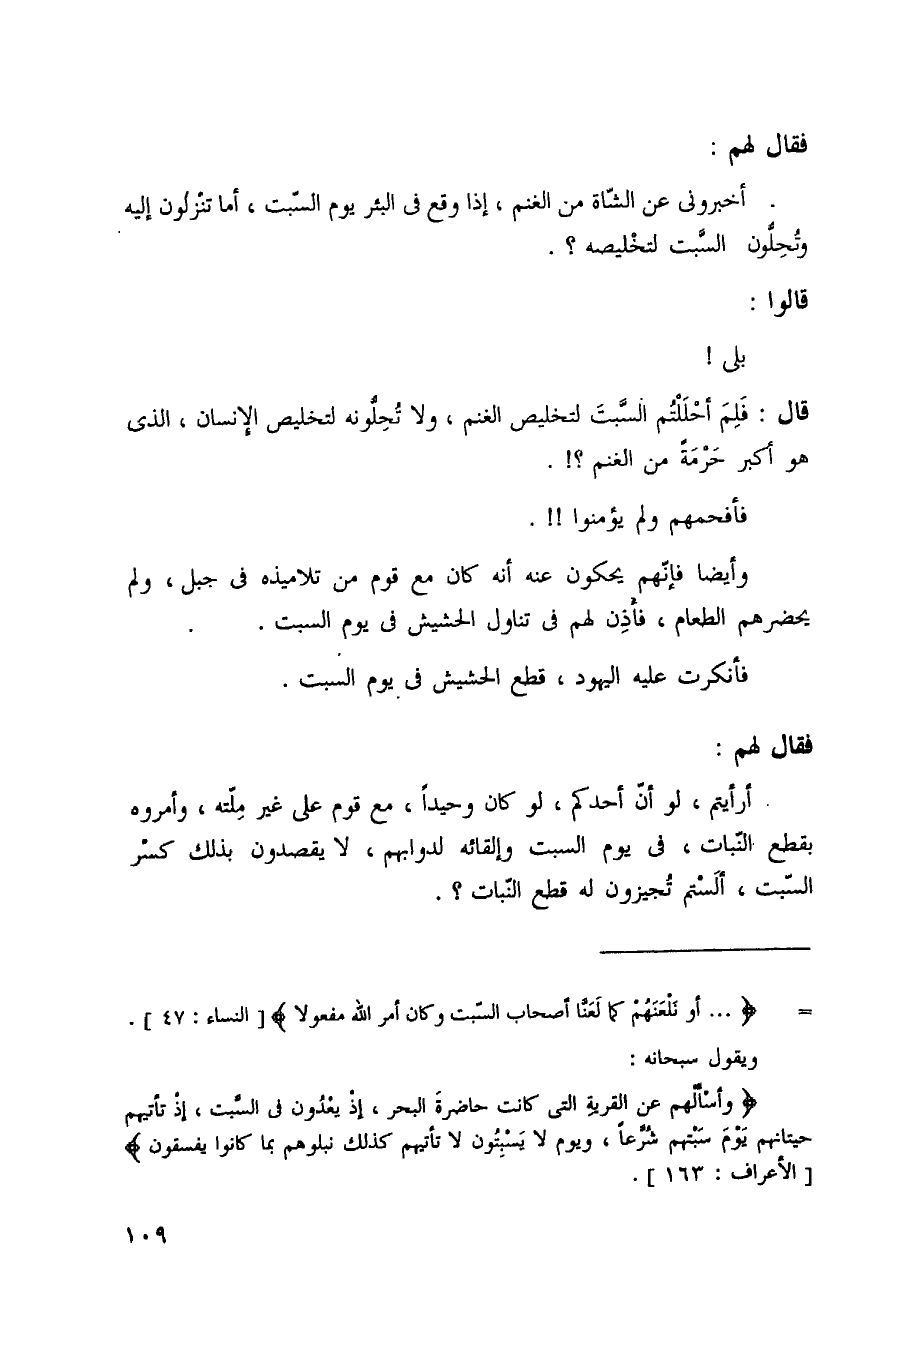 فقال لهم :
. أخبرونى عن الشّاة من الغنم ، إذا وقع فى البئر يوم السّبت ، أما تنْزلون إليه
وتُحِلُّون السَّبت لتخْليصه ؟ .
قالوا :
بلى !
قال : فَلِمَ أحْلَلْتُم السَّبتَ لتخليص الغنم ، ولا تُحِلُّونه لتخليص الإنسان ، الذى
هو أكبر حَرْمَةً من الغنم ؟! .
فأفحمهم ولم يؤمنوا !! .
وأيضا فإنّهم يحكون عنه أنه كان مع قوم من تلاميذه فى جبل ، ولم
يحضرهم الطعام ، فأُذِن لهم فى تناول الحشيش فى يوم السبت .
فأنكرت عليه اليهود ، قطع الحشيش فى يوم السبت .
فقال لهم :
أرأيتم ، لو أنّ أحدكم ، لو كان وحيداً ، مع قوم على غير مِلّته ، وأمروه
بقطع النّبات ، فى يوم السبت وإلقائه لدوابهم ، لا يقصدون بذلك كسْر
السّبت ، ألَسْتم تُجيزون له قطع النّبات ؟ .
= ﴿ ... أو نَلْعَنَهُمْ كما لَعَنَّا أصحاب السّبت وكان أمر الله مفعولا ﴾ [ النساء : ٤٧ ] .
ويقول سبحانه :
﴿ وأسْألْهم عن القريةِ التى كانت حاضرةَ البحر ، إذْ يعْدُون فى السَّبت ، إذْ تأتيهم
حيتانهم يَوْمَ سَبْتهم شُرَّعاً ، ويوم لا يَسْبِتُون لا تأتيهم كذلك نبلوهم بما كانوا يفسقون ﴾
[ الأعراف : ١٦٣ ] .
١٠٩